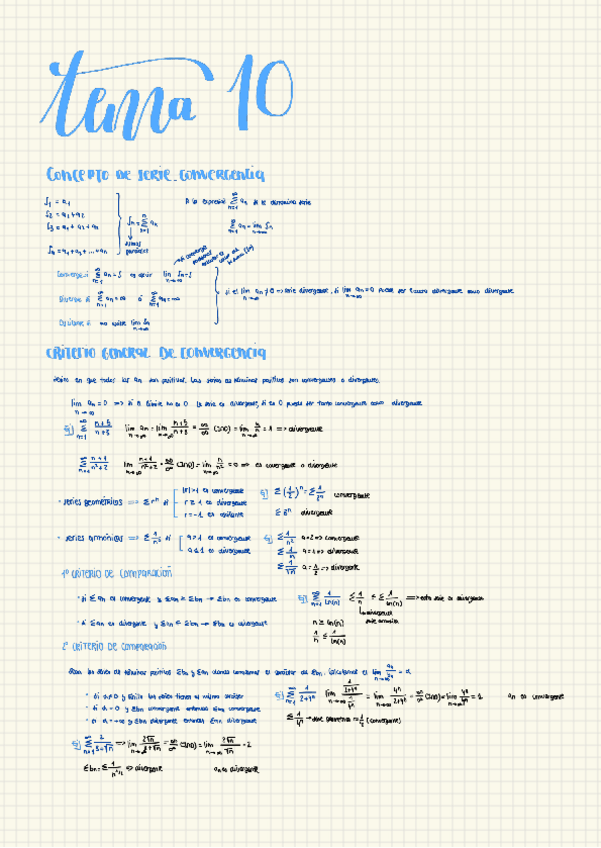 tema 10
CONCEPTO DE SERIE. CONVERGENCIA
S₁ = a₁
S₂ = a₁+a₂
S₃ = a₁ + a₂ + a₃
Sₙ = a₁+a₂+...+aₙ
sumas parciales
A la expresión ∑ aₙ se le denomina serie
∑ aₙ = lim Sₙ
Converge si ∑ aₙ = S es decir lim Sₙ = S
Diverge si ∑ aₙ = ∞ ó ∑ aₙ = -∞
Oscilante si no existe lim Sₙ
si el lim aₙ ≠ 0 => serie divergente, si lim aₙ = 0 puede ser tanto divergente como divergente
CRITERIO GENERAL DE CONVERGENCIA
en que todos los an son positivos. Las series de términos positivos son convergentes o divergentes.
lim aₙ = 0 => si el límite no es 0 la serie es divergente, si es 0 puede ser tanto convergente como divergente
Ej) ∑ n+5/n+3 lim aₙ = lim n+5/n+3 = ∞/∞ (IND) = lim n/n = 1 => divergente
∑ n+1/n²+2 lim n+1/n²+2 = ∞/∞ (IND) = lim n/n² = 0 => es convergente o divergente
· series geométricas => ∑ rⁿ si
|r|<1 es convergente
r ≥ 1 es divergente
r = -1 es oscilante
Ej) ∑ (1/2)ⁿ = ∑ 1/2ⁿ convergente
∑ 8ⁿ divergente
· series armónicas => ∑ 1/nᵃ si
a > 1 es convergente
a ≤ 1 es divergente
Ej) ∑ 1/n² a=2 => convergente
∑ 1/n a=1 => divergente
∑ 1/√n a=1/2 => divergente
1º CRITERIO DE COMPARACIÓN
· si ∑ an es convergente y ∑ an ≥ ∑ bn → ∑ bn es convergente
· si ∑ an es divergente y ∑ an ≤ ∑ bn → ∑ bn es divergente
Ej) ∑ 1/ln(n) ∑ 1/n ≤ ∑ 1/ln(n) => esta serie es divergente
divergente
serie armónica
n ≥ ln(n)
1/n ≤ 1/ln(n)
2º CRITERIO DE COMPARACIÓN
Sean las series de términos positivos ∑ bn y ∑ an donde conocemos el carácter de ∑ bn, calculamos el lim aₙ/bₙ = α
· si α ≠ 0 y finito las series tienen el mismo carácter
· si α = 0 y ∑ bn convergente entonces ∑ an convergente
· si α = ∞ y ∑ bn divergente entonces ∑ an divergente
= lim 4ⁿ/2+4ⁿ = ∞/∞ (IND) = lim 4ⁿ/4ⁿ = 1 an es convergente
∑ 1/4ⁿ → serie geométrica (convergente)
∑ bn = ∑ 1/n¹ᐟ² => divergente an es divergente